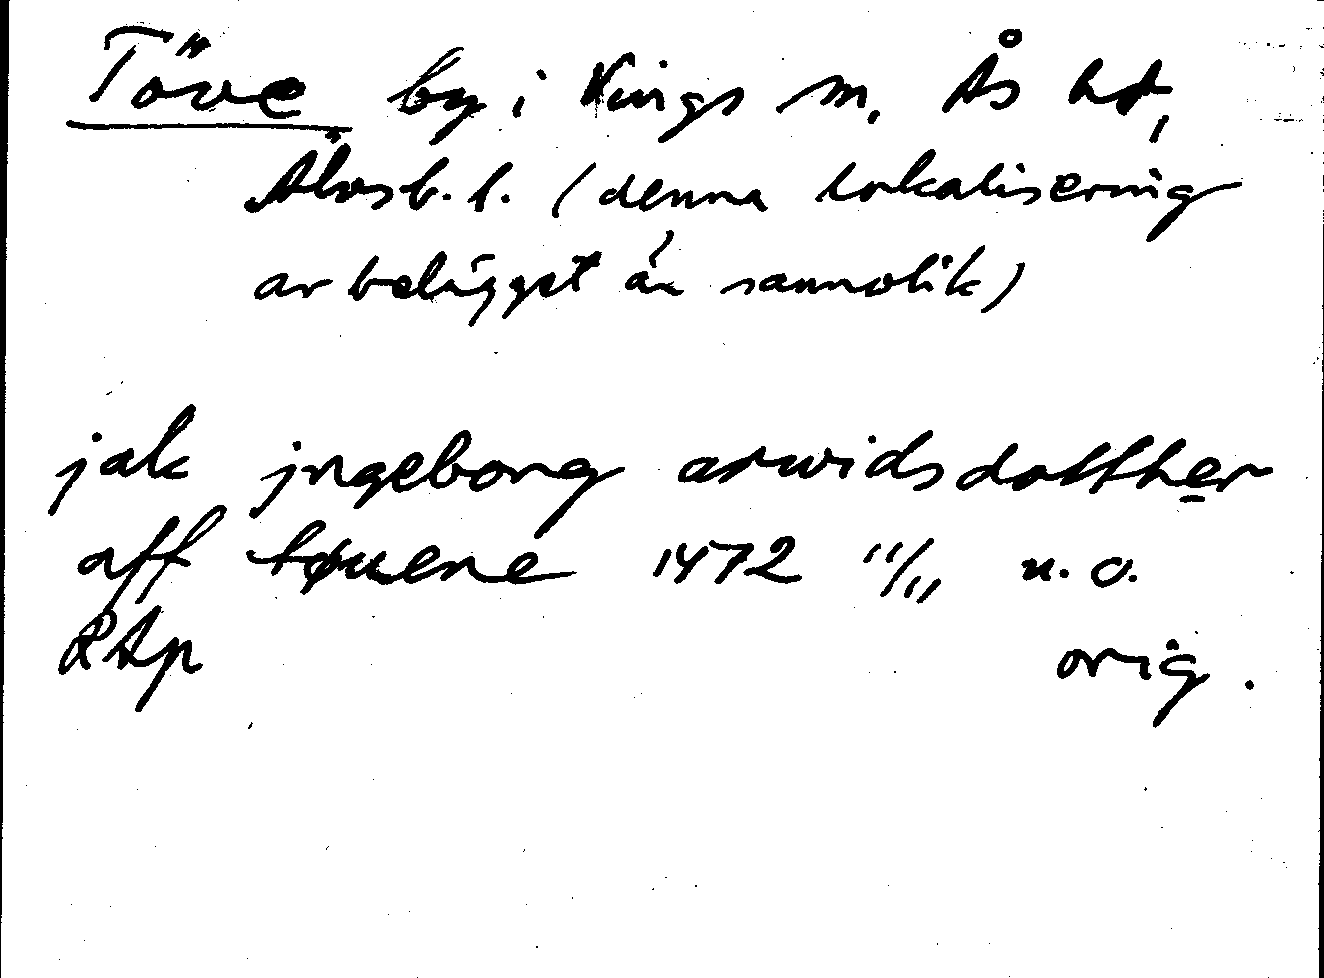 Töve by i Kings sn, Ås hd,
Älvsb. l. (denna lokalisering
av belägget är sannolik)
jak jngeborg arwidsdotther
aff tøuene 1472 11/11 u. o.
RAp orig.